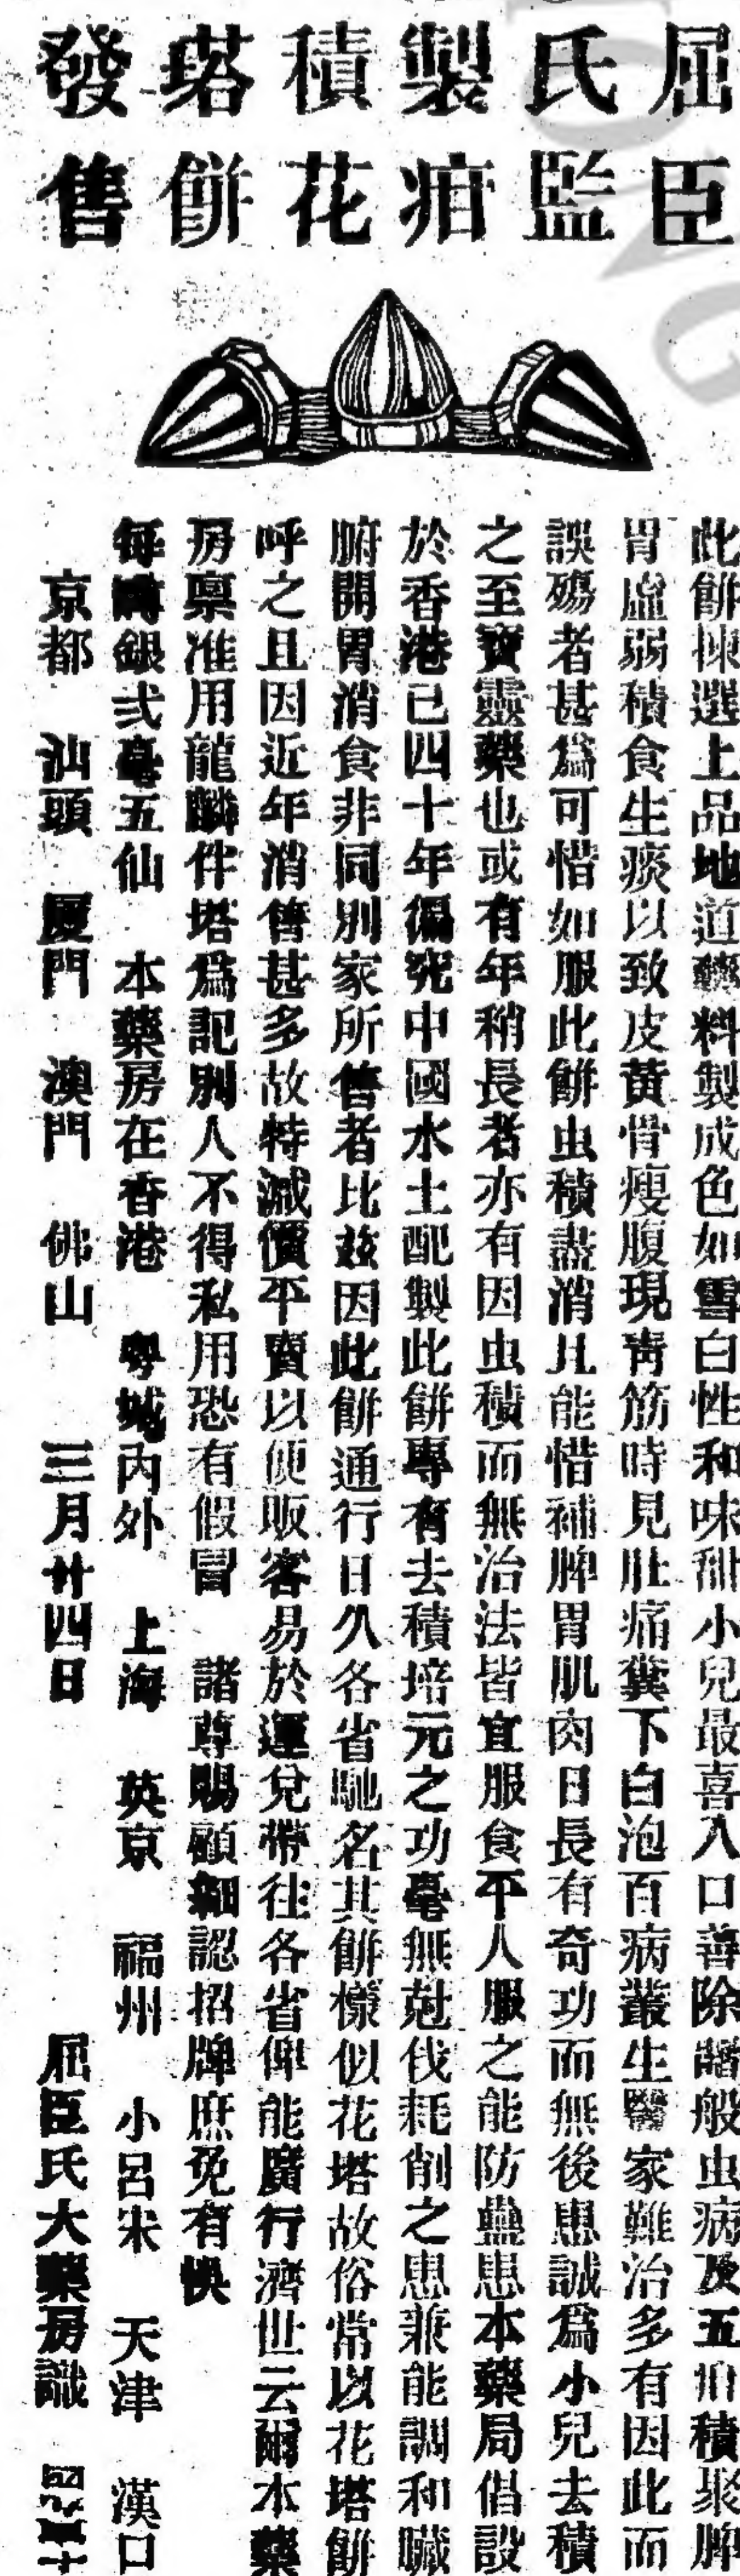 屈臣
氏監
製疳
積花
㙮餅
發售
此餅揀選上品地道藥料製成色如雪白性和味甜小兒最喜入口善除諸般虫病及五疳積聚脾
胃虛弱積食生痰以致皮黃骨瘦腹現青筋時見肚痛糞下白泡百病叢生醫家難治多有因此而
誤殤者甚爲可惜如服此餅虫積盡消且能惜補脾胃肌肉日長有奇功而無後患誠爲小兒去積
之至寶靈藥也或有年稍長者亦有因虫積而無治法皆宜服食平人服之能防蠱患本藥局倡設
於香港已四十年徧究中國水土配製此餅專有去積培元之功毫無尅伐耗削之患兼能調和臟
腑開胃消食非同別家所售者比玆因此餅通行日久各省馳名其餅樣似花塔故俗常以花塔餅
呼之且因近年消售甚多故特減價平賣以便販客易於運兌帶往各省俾能廣行濟世云爾本藥
房禀准用龍麟伴塔爲記別人不得私用恐有假冒 諸尊賜顧細認招牌庶免有悞
每 銀弍毫五仙 本藥房在香港 粵城內外 上海 英京 福州 小呂宋 天津 漢口
京都 汕頭 厦門 澳門 佛山 三月廿四日 屈臣氏大藥房識